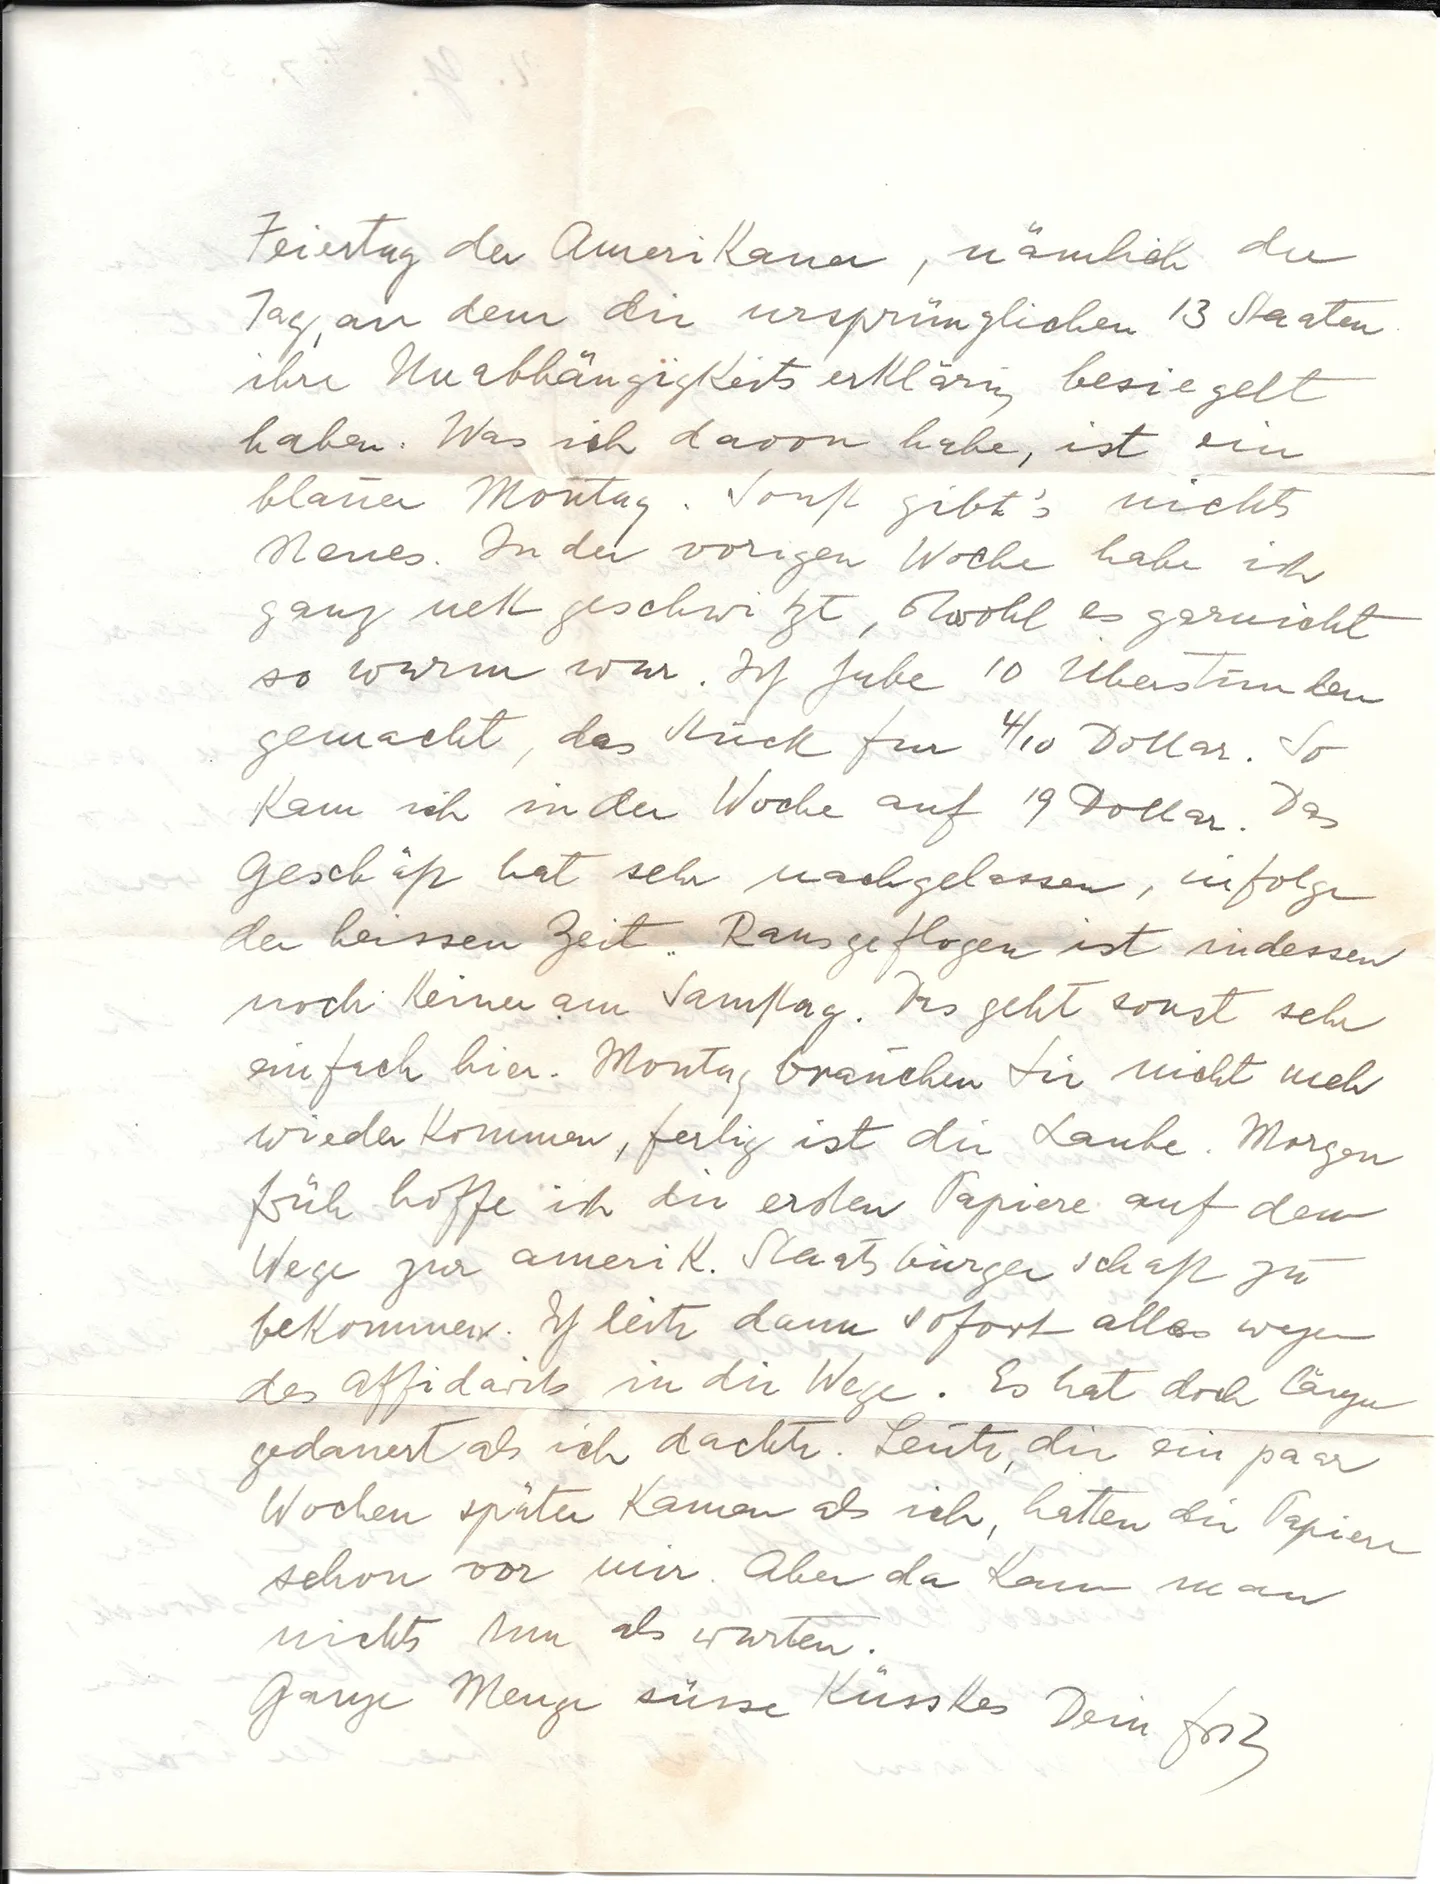 Feiertag der Amerikaner, nämlich der
Tag, an dem die ursprünglichen 13 Staaten
ihre Unabhängigkeitserklärung besiegelt
haben. Was ich davon habe, ist ein
blauer Montag. Sonst gibt's nichts
Neues. In der vorigen Woche habe ich
ganz nett geschwitzt, obwohl es garnicht
so warm war. Ich habe 10 Überstunden
gemacht, das Stück für 4/10 Dollar. So
kam ich in der Woche auf 19 Dollar. Das
Geschäft hat sehr nachgelassen, infolge
der heissen Zeit. Rausgeflogen ist indessen
noch keiner am Samstag. Das geht sonst sehr
einfach hier. Montag brauchen Sie nicht mehr
wieder kommen, fertig ist die Laube. Morgen
früh hoffe ich die ersten Papiere auf dem
Wege zur amerik. Staatsbürgerschaft zu
bekommen. Ich leite dann sofort alles wegen
des Affidavits in die Wege. Es hat doch länger
gedauert als ich dachte. Leute, die ein paar
Wochen später kamen als ich, hatten die Papiere
schon vor mir. Aber da kann man
nichts tun als warten.
Ganze Menge süsse Küsskes Dein Fritz